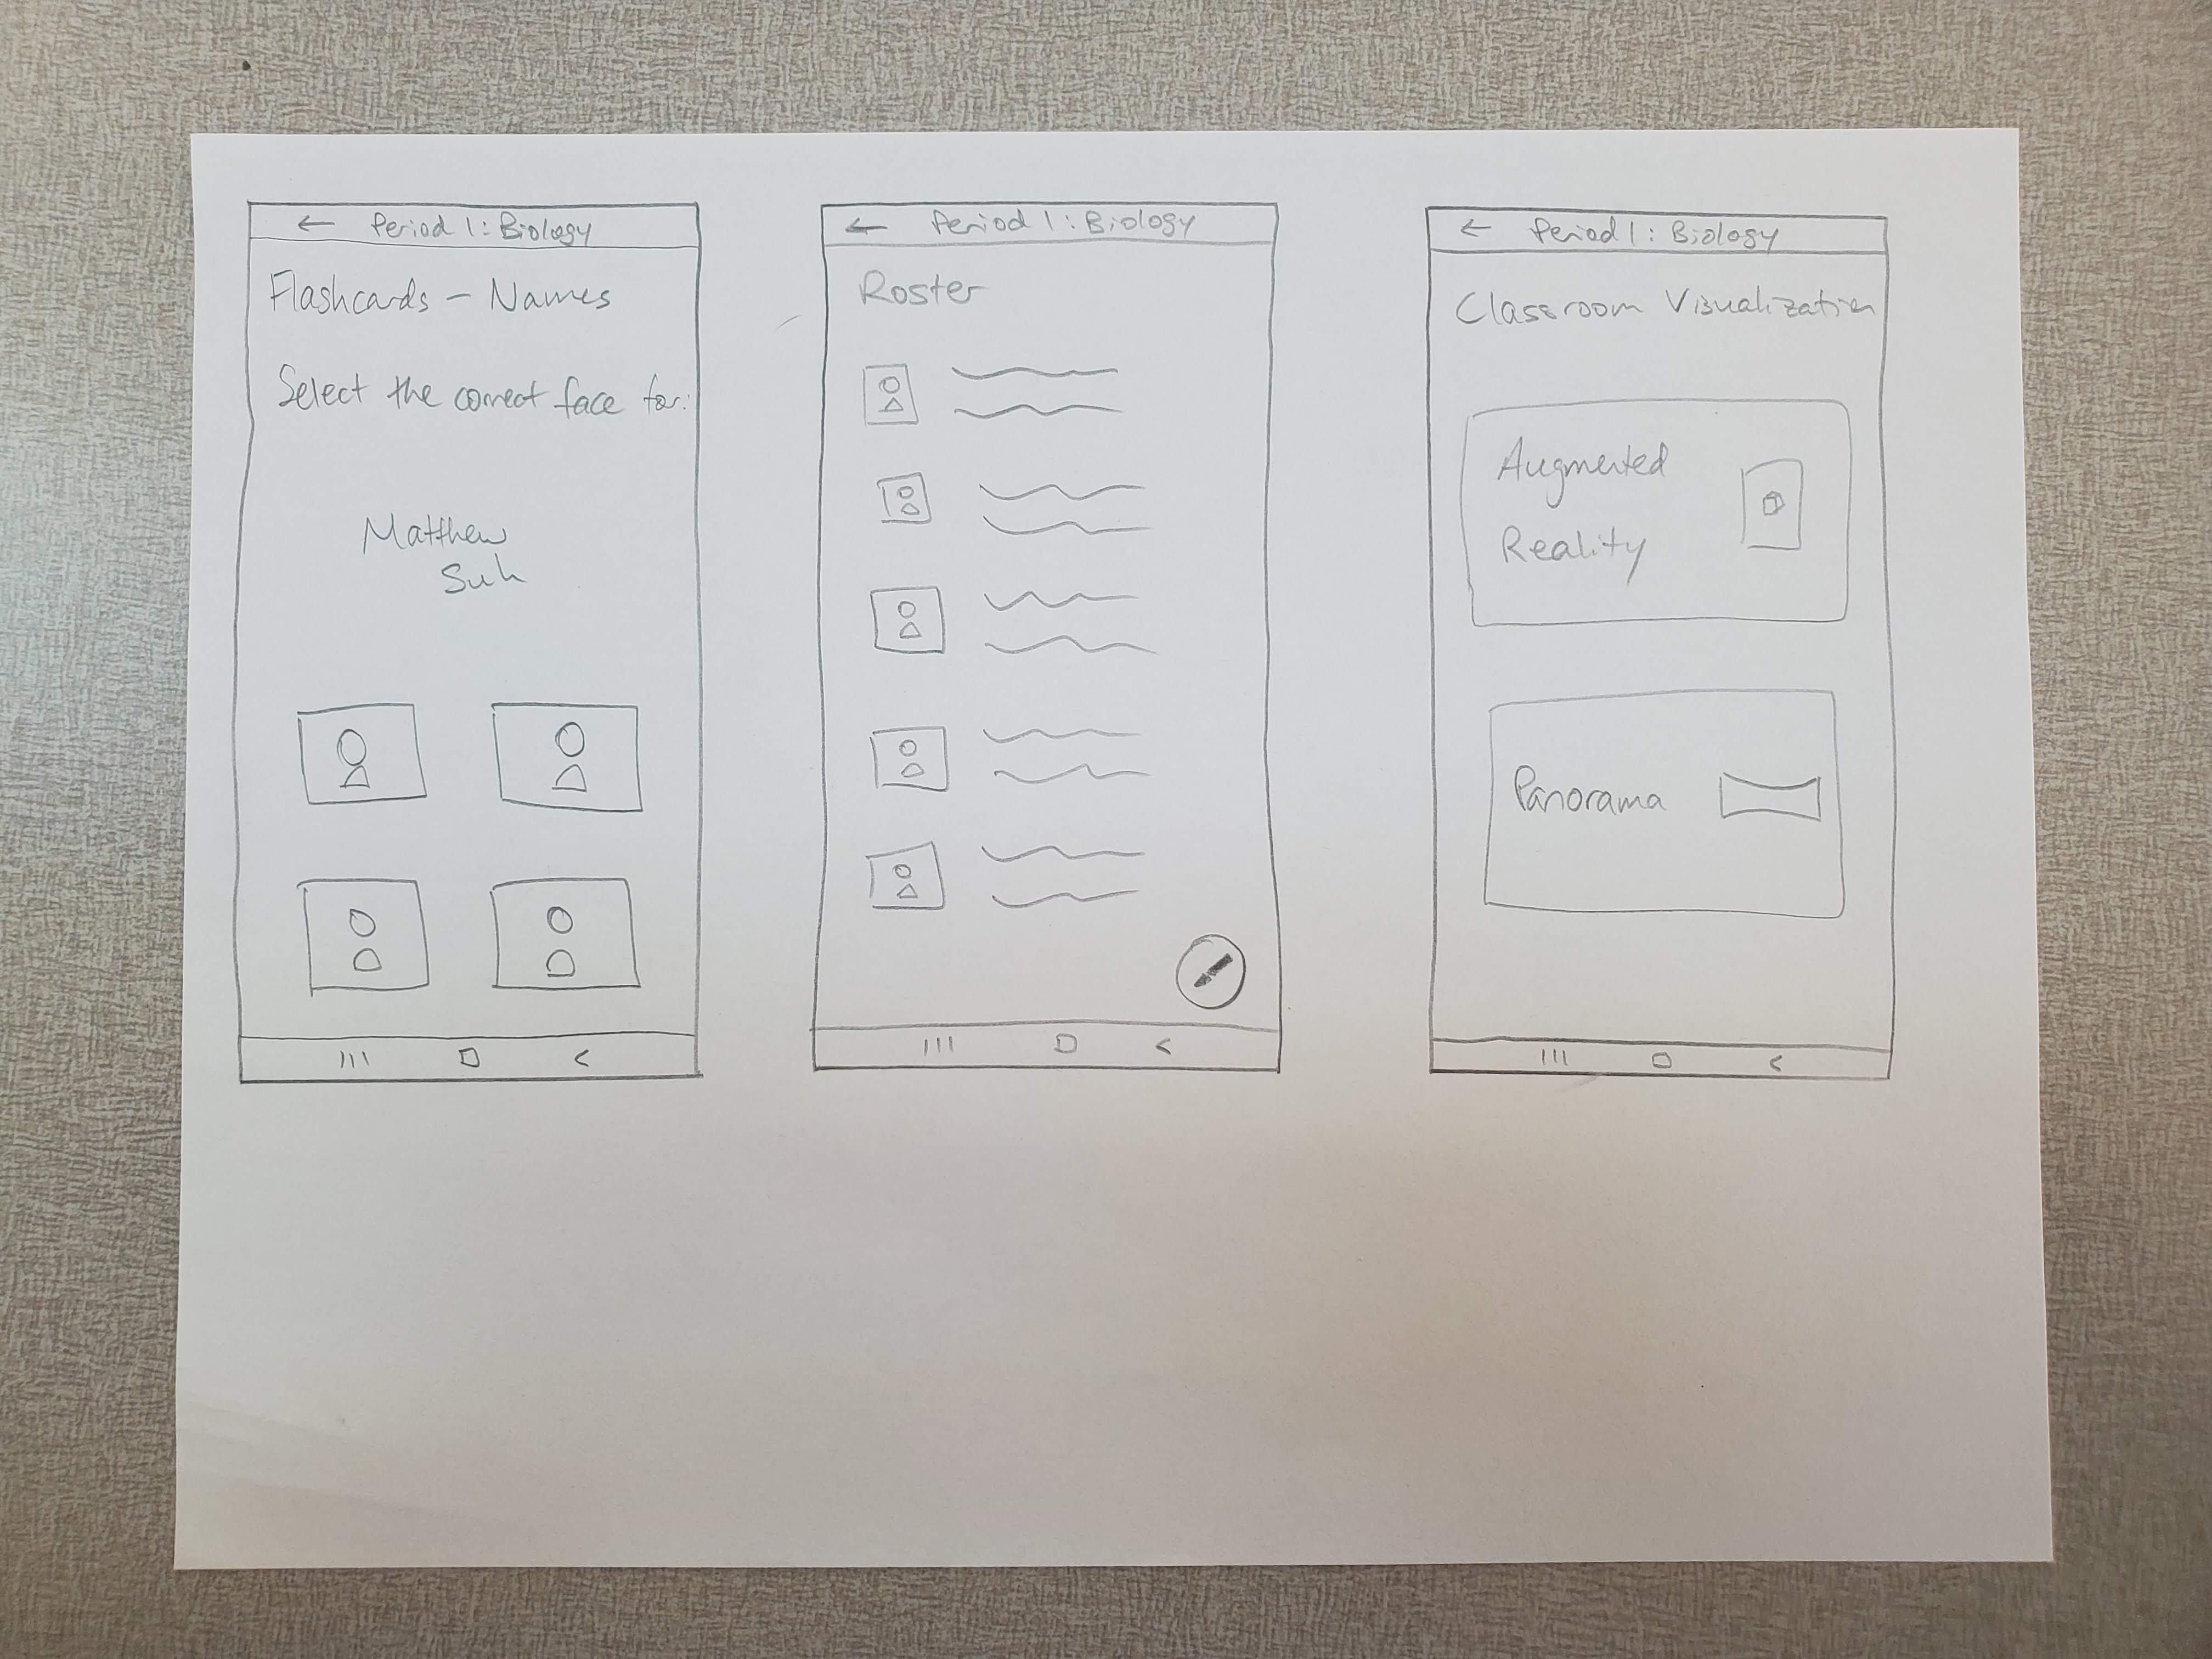 ← Period 1: Biology
Flashcards - Names
Select the correct face for:
Matthew
Suh
← Period 1: Biology
Roster
← Period 1: Biology
Classroom Visualization
Augmented
Reality
Panorama